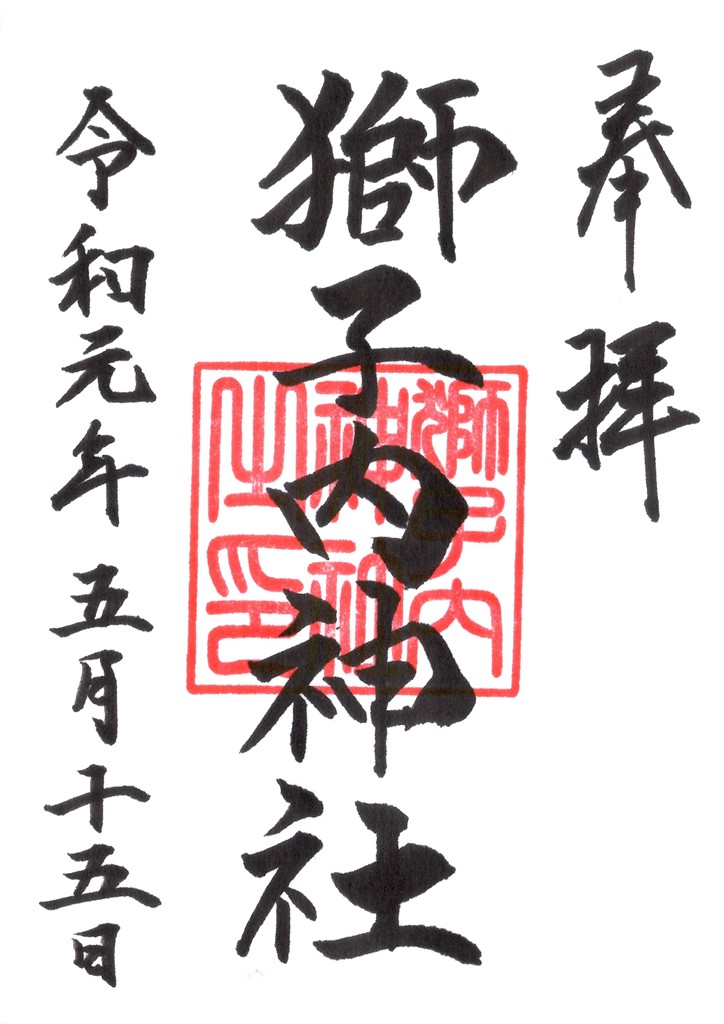 奉拝
獅子内神社
獅子内
神社
之印
令和元年五月十五日